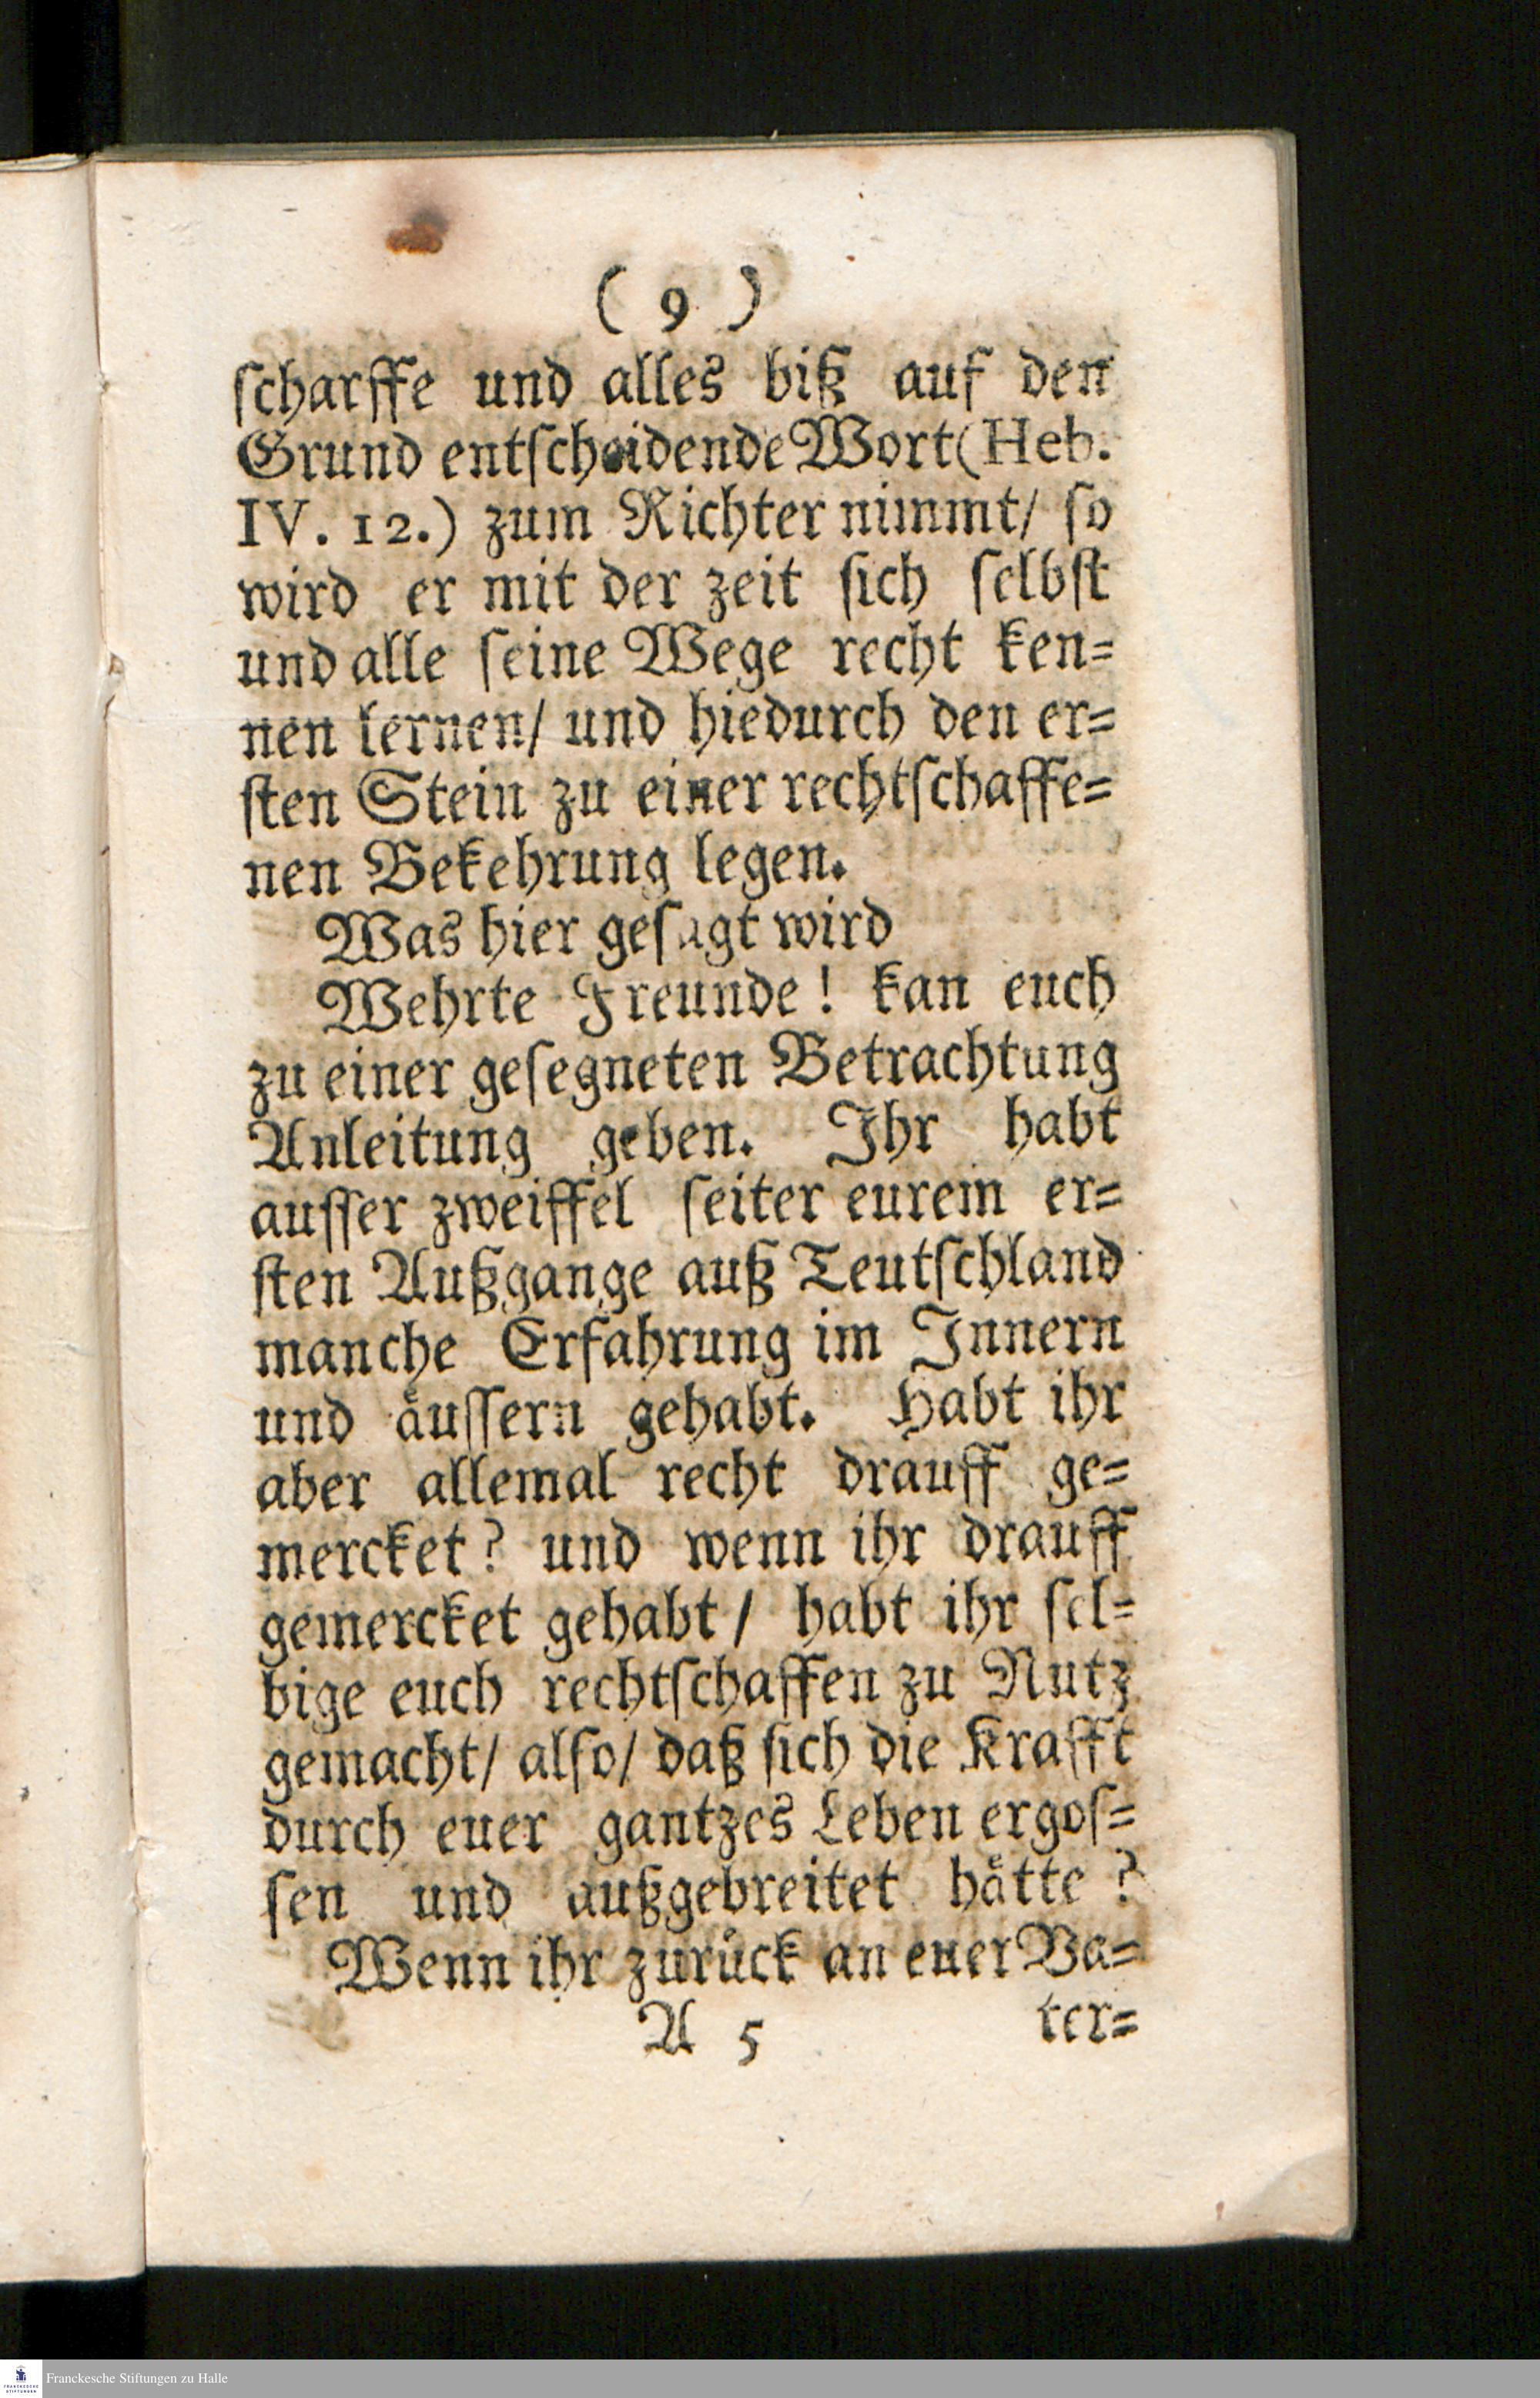 ( 9 )
ſcharffe und alles biß auf den
Grund entſcheidende Wort (Heb.
IV. 12.) zum Richter nimmt/ ſo
wird er mit der zeit ſich ſelbſt
und alle ſeine Wege recht ken=
nen lernen/ und hiedurch den er=
ſten Stein zu einer rechtſchaffe=
nen Bekehrung legen.
Was hier geſagt wird
Wehrte Freunde! kan euch
zu einer geſegneten Betrachtung
Anleitung geben. Ihr habt
auſſer zweiffel ſeiter eurem er=
ſten Außgange auß Teutſchland
manche Erfahrung im Innern
und aͤuſſern gehabt. Habt ihr
aber allemal recht drauff ge=
mercket? und wenn ihr drauff
gemercket gehabt/ habt ihr ſel=
bige euch rechtſchaffen zu Nutz
gemacht/ alſo/ daß ſich die Krafft
durch euer gantzes Leben ergoſ=
ſen und außgebreitet haͤtte?
Wenn ihr zuruͤck an euer Va=
A 5 ter=
Franckesche Stiftungen zu Halle
FRANCKESCHE
STIFTUNGEN